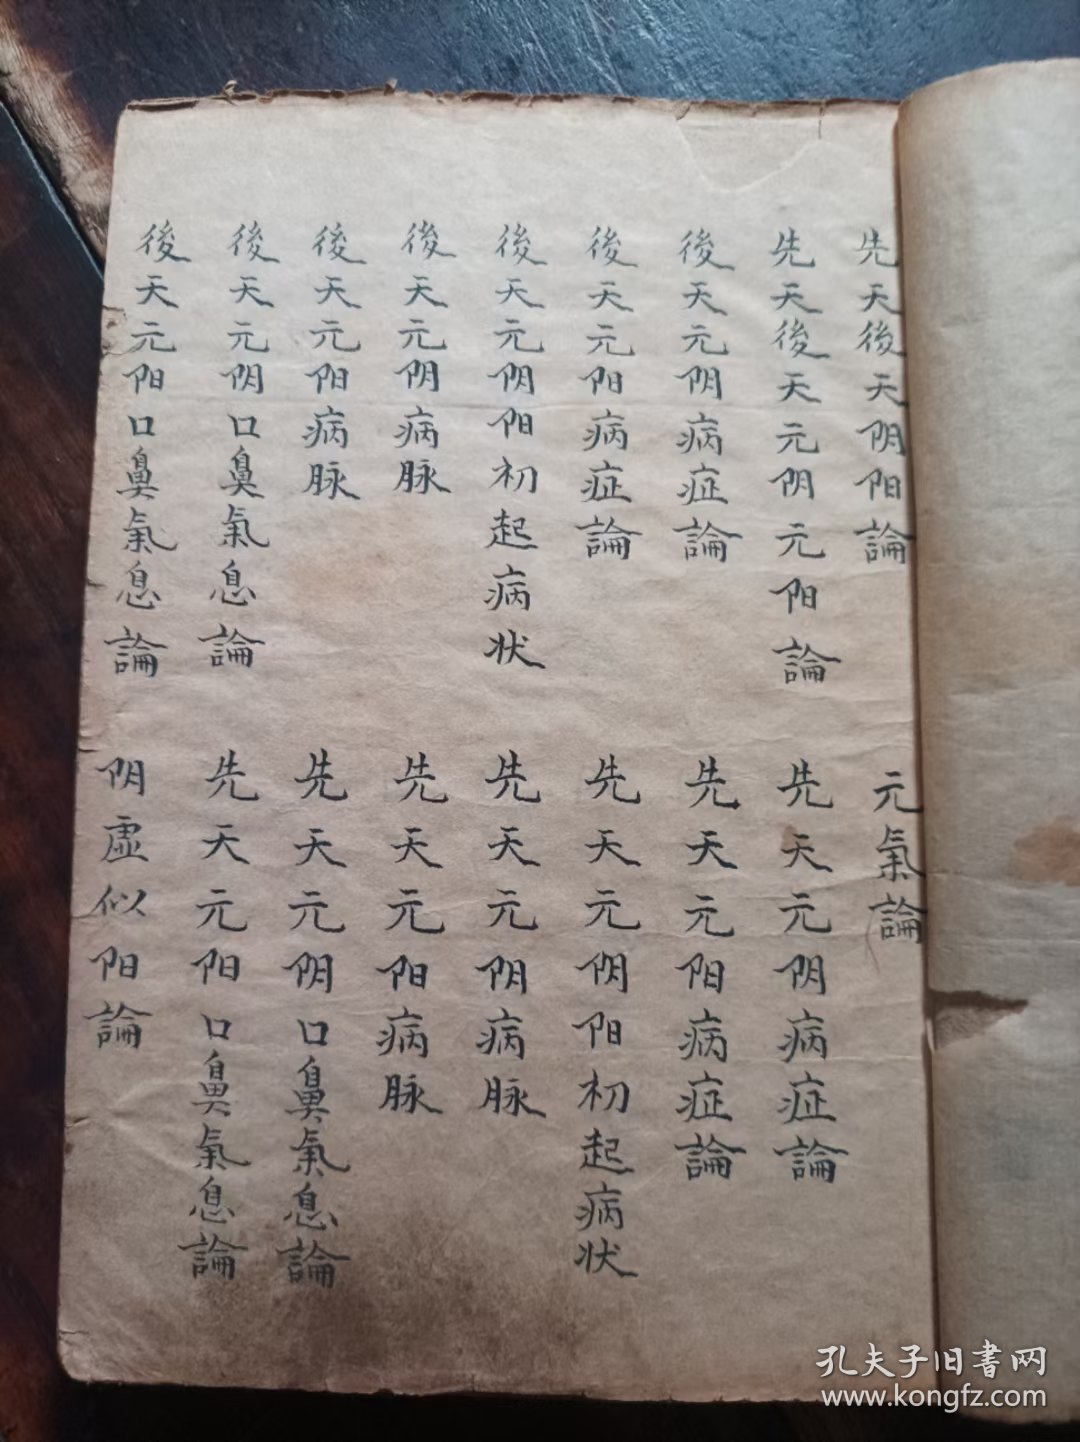 先天後天阴阳論
元氣論
先天後天元阴元阳論
先天元阴病症論
後天元阴病症論
先天元阳病症論
後天元阳病症論
先天元阴阳初起病状
後天元阴阳初起病状
先天元阴病脉
後天元阴病脉
先天元阳病脉
後天元阳病脉
先天元阴口鼻氣息論
後天元阴口鼻氣息論
先天元阳口鼻氣息論
後天元阳口鼻氣息論
阴虚似阳論
孔夫子旧書网
www.kongfz.com